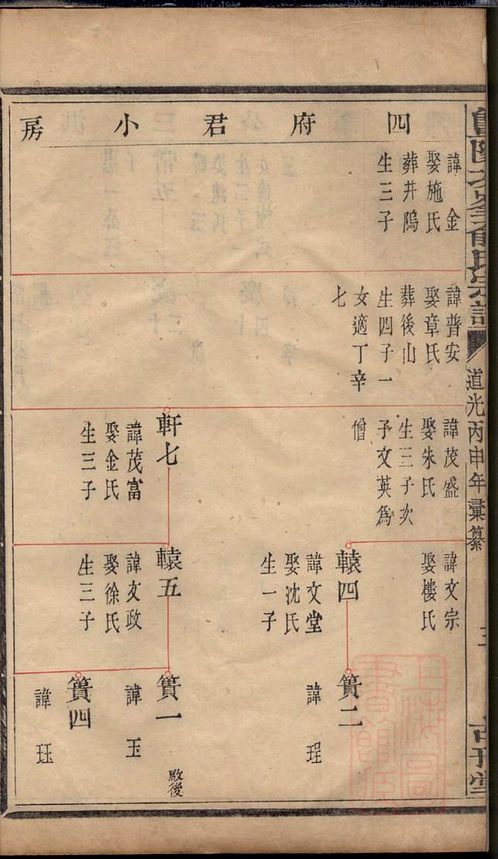 四府君小房
諱金
娶施氏
葬井隖
生三子
諱普安
娶章氏
葬後山
生四子一
女適丁辛
七
諱茂盛
娶朱氏
生三子次
子文英為
僧
軒七
諱茂富
娶金氏
生三子
諱文宗
娶樓氏
轅四
諱文堂
娶沈氏
生一子
轅五
諱文政
娶徐氏
生三子
簣二
諱珵
簣一
諱玉
殿後
簣四
諱珏
俞氏宗譜
道光丙申年彙纂
三